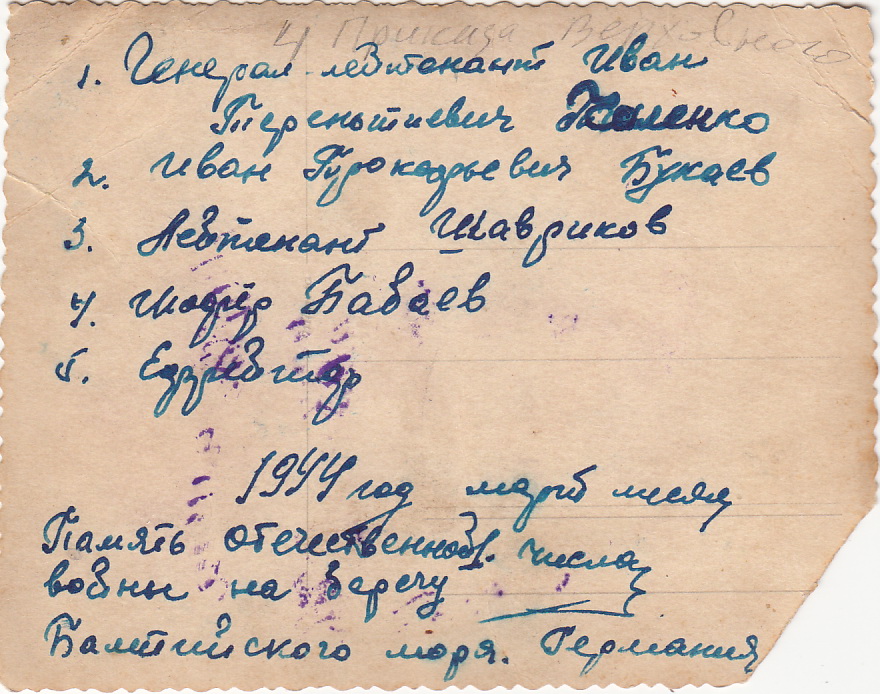 4 Приказа Верховного
1. Генерал-лейтенант Иван
Терентьиевич
2. Иван Прокофьевич Букаев
3. Лейтенант Шавриков
4. Шофёр Бабаев
5. Ефрейтор
1944 год март месяц
Память отечественной 1. числа
войны на берегу
Балтийского моря. Германия